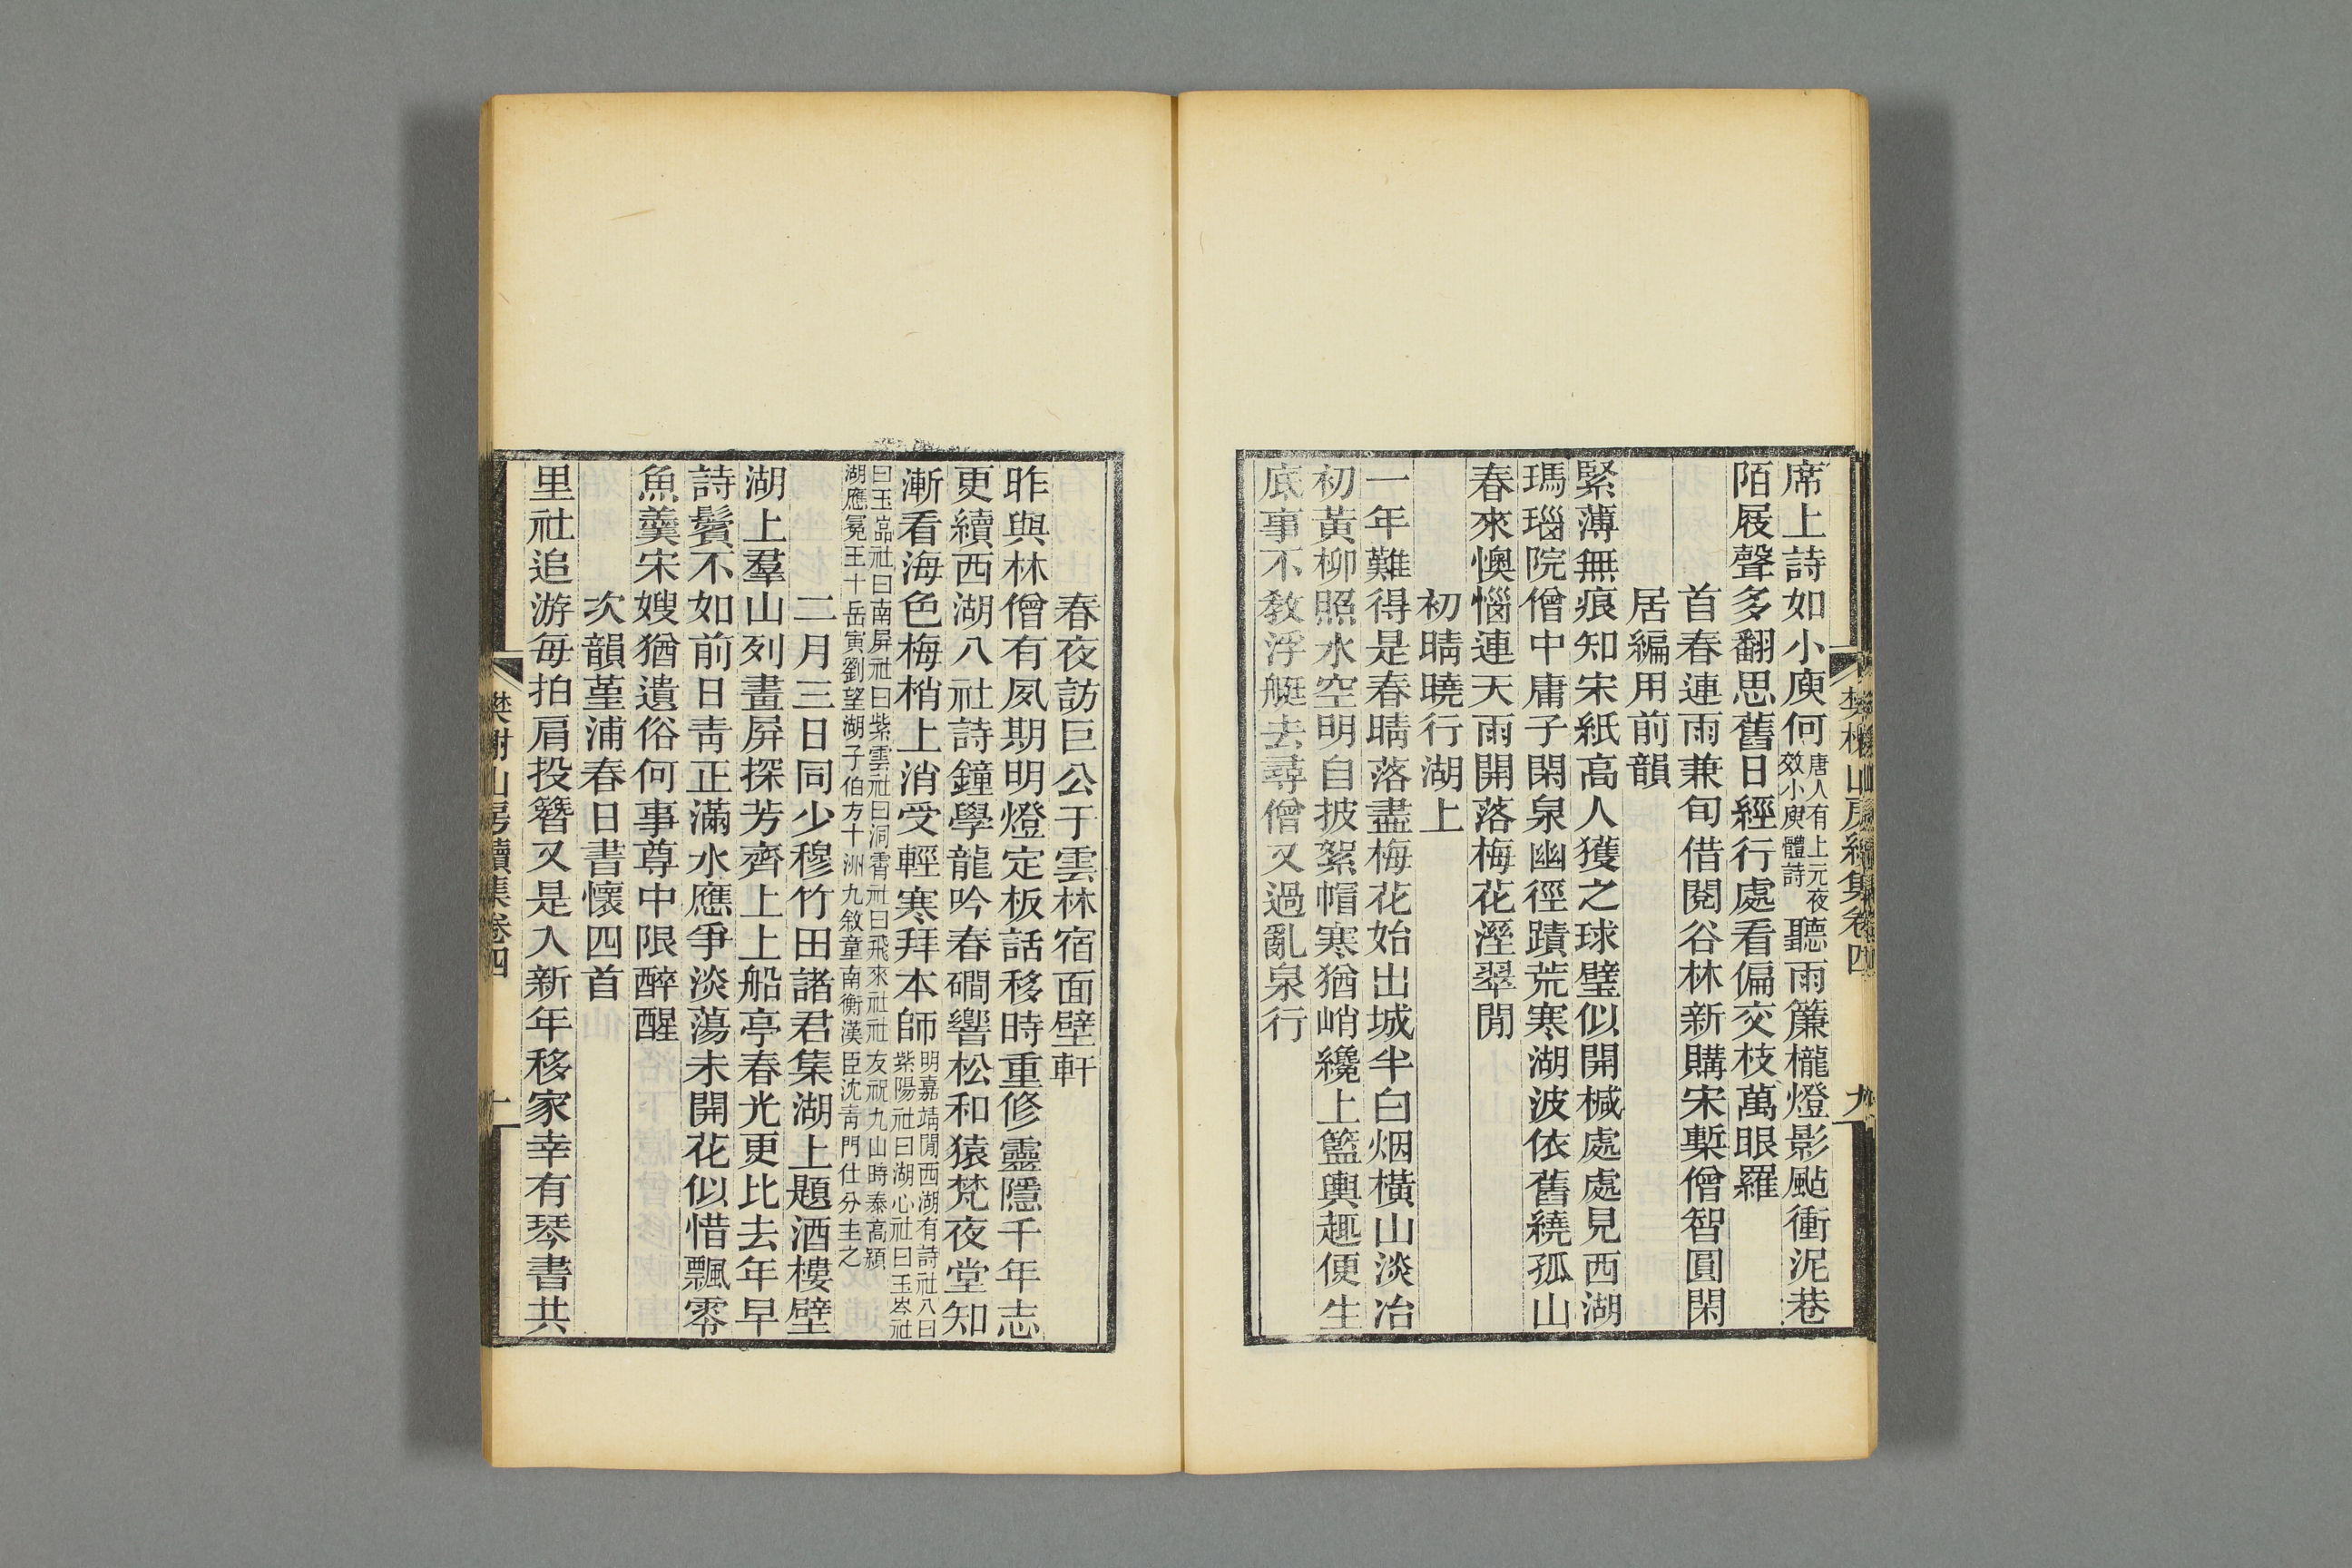 樊榭山房續集卷四
九
席上詩如小庾何唐人有上元夜效小庾體詩聽雨簾櫳燈影颭衝泥巷
陌屐聲多翻思舊日經行處看偏交枝萬眼羅
首春連雨兼旬借閱谷林新購宋槧僧智圓閑
居編用前韻
緊薄無痕知宋紙高人獲之球璧似開椷處處見西湖
瑪瑙院僧中庸子閑泉幽徑蹟荒寒湖波依舊繞孤山
春來懊惱連天雨開落梅花溼翠閒
初晴曉行湖上
一年難得是春晴落盡梅花始出城半白烟橫山淡冶
初黃柳照水空明自披絮帽寒猶峭纔上籃輿趣便生
底事不教浮艇去尋僧又過亂泉行
春夜訪巨公于雲林宿面壁軒
昨與林僧有夙期明燈定板話移時重修靈隱千年志
更續西湖八社詩鐘學龍吟春磵響松和猿梵夜堂知
漸看海色梅梢上消受輕寒拜本師明嘉靖閒西湖有詩社八曰紫陽社曰湖心社曰玉岑社
曰玉嵓社曰南屏社曰紫雲社曰洞霄社曰飛來社社友祝九山時泰高潁
湖應冕王十岳寅劉望湖子伯方十洲九敘童南衡漢臣沈青門仕分主之
二月三日同少穆竹田諸君集湖上題酒樓壁
湖上羣山列畫屏探芳齊上上船亭春光更比去年早
詩鬢不如前日青正滿水應爭淡蕩未開花似惜飄零
魚羹宋嫂猶遺俗何事尊中限醉醒
次韻堇浦春日書懷四首
里社追游每拍肩投簪又是入新年移家幸有琴書共
樊榭山房續集卷四
十